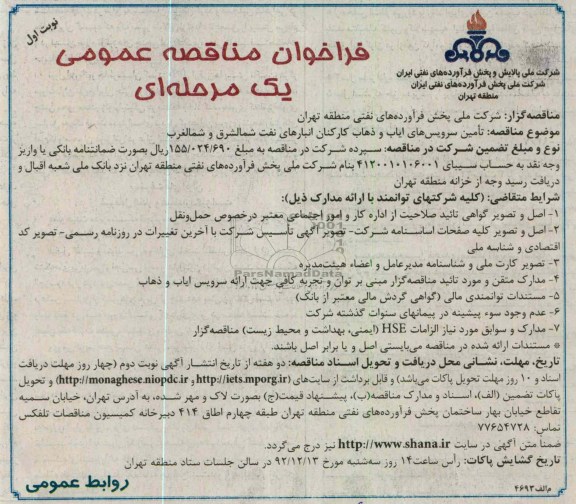 نوبت اول
فراخوان مناقصه عمومی
یک مرحله‌ای
شرکت ملی پالایش و پخش فرآورده‌های نفتی ایران
شرکت ملی پخش فرآورده‌های نفتی ایران
منطقه تهران
مناقصه‌گزار: شرکت ملی پخش فرآورده‌های نفتی منطقه تهران
موضوع مناقصه: تأمین سرویس‌های ایاب و ذهاب کارکنان انبارهای نفت شمالشرق و شمالغرب
نوع و مبلغ تضمین شرکت در مناقصه: سپرده شرکت در مناقصه به مبلغ ۱۵۵/۰۲۴/۶۹۰ریال بصورت ضمانتنامه بانکی یا واریز
وجه نقد به حساب سیبای ۴۱۲۰۰۱۰۱۰۶۰۰۱ بنام شرکت ملی پخش فرآورده‌های نفتی منطقه تهران نزد بانک ملی شعبه اقبال و
دریافت رسید وجه از خزانه منطقه تهران
شرایط متقاضی: (کلیه شرکتهای توانمند با ارائه مدارک ذیل):
۱- اصل و تصویر گواهی تائید صلاحیت از اداره کار و امور اجتماعی معتبر درخصوص حمل‌ونقل
۲- اصل و تصویر کلیه صفحات اساسنامه شرکت- تصویر آگهی تأسیس شرکت با آخرین تغییرات در روزنامه رسمی- تصویر کد
اقتصادی و شناسه ملی
۳- تصویر کارت ملی و شناسنامه مدیرعامل و اعضاء هیئت‌مدیره
۴- مدارک متقن و مورد تائید مناقصه‌گزار مبنی بر توان و تجربه کافی جهت ارائه سرویس ایاب و ذهاب
۵- مستندات توانمندی مالی (گواهی گردش مالی معتبر از بانک)
۶- عدم وجود سوء پیشینه در پیمانهای سنوات گذشته شرکت
۷- مدارک و سوابق مورد نیاز الزامات HSE (ایمنی، بهداشت و محیط زیست) مناقصه‌گزار
* مستندات ارائه شده در مناقصه می‌بایستی اصل و یا برابر اصل باشند.
تاریخ، مهلت، نشانی محل دریافت و تحویل اسناد مناقصه: دو هفته از تاریخ انتشار آگهی نوبت دوم (چهار روز مهلت دریافت
اسناد و ۱۰ روز مهلت تحویل پاکات می‌باشد) و قابل برداشت از سایت‌های (http://iets.mporg.ir و http://monaghese.niopdc.ir) و تحویل
پاکات تضمین (الف)، اسناد و مدارک مناقصه(ب)، پیشنهاد قیمت(ج) بصورت لاک و مهر شده، به آدرس تهران، خیابان سمیه
تقاطع خیابان بهار ساختمان پخش فرآورده‌های نفتی منطقه تهران طبقه چهارم اطاق ۴۱۴ دبیرخانه کمیسیون مناقصات تلفکس
تماس: ۷۷۶۵۴۷۲۸
ضمنا متن آگهی در سایت http://www.shana.ir نیز درج می‌گردد.
تاریخ گشایش پاکات: رأس ساعت۱۴ روز سه‌شنبه مورخ ۹۲/۱۲/۱۳ در سالن جلسات ستاد منطقه تهران
م‌الف۴۶۹۳
روابط عمومی
ParsNamadData